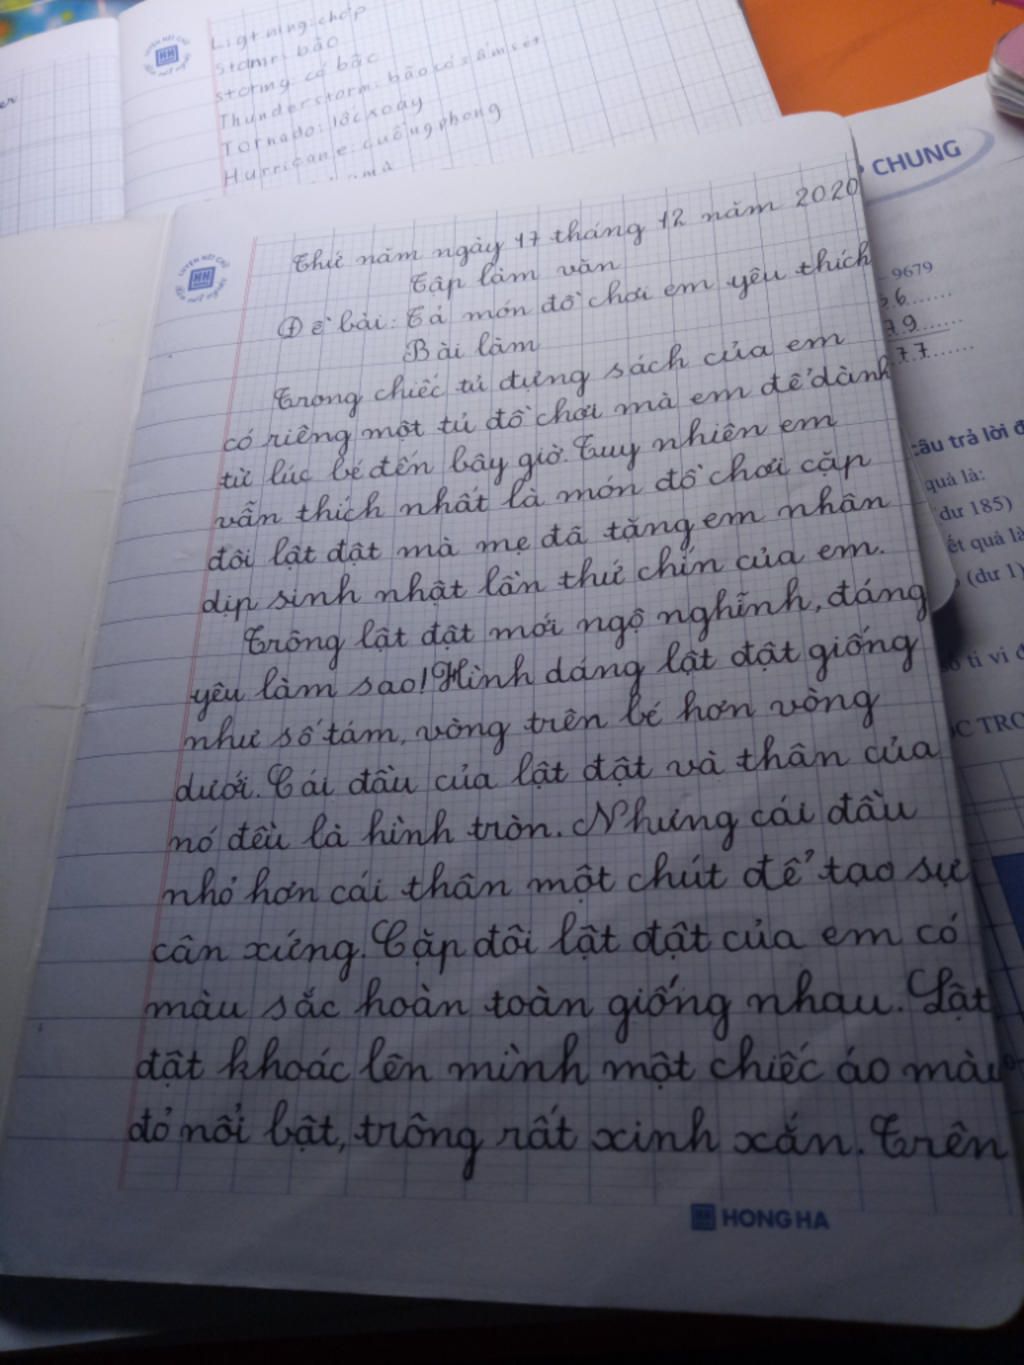 Ligtning: chớp
Stomr: bão
Storing: cố bấc
Thunderstorm: bão có sấm sét
Tornado: lốc xoáy
Hurricane: cuồng phong
CHUNG
9679
Thứ năm ngày 17 tháng 12 năm 2020
Tập làm văn
Đề bài: Tả món đồ chơi em yêu thích
Bài làm
Trong chiếc tủ đựng sách của em
có riêng một tủ đồ chơi mà em để dành
từ lúc bé đến bây giờ. Tuy nhiên em
vẫn thích nhất là món đồ chơi cặp
đôi lật đật mà mẹ đã tặng em nhân
dịp sinh nhật lần thứ chín của em.
Trông lật đật mới ngộ nghĩnh, đáng
yêu làm sao! Hình dáng lật đật giống
như số tám, vòng trên bé hơn vòng
dưới. Cái đầu của lật đật và thân của
nó đều là hình tròn. Nhưng cái đầu
nhỏ hơn cái thân một chút để tạo sự
cân xứng. Cặp đôi lật đật của em có
màu sắc hoàn toàn giống nhau. Lật
đật khoác lên mình một chiếc áo màu
đỏ nổi bật, trông rất xinh xắn. Trên
HONG HA
câu trả lời đ
quả là:
dư 185)
ết quả là
(dư 1)
ti vi đ